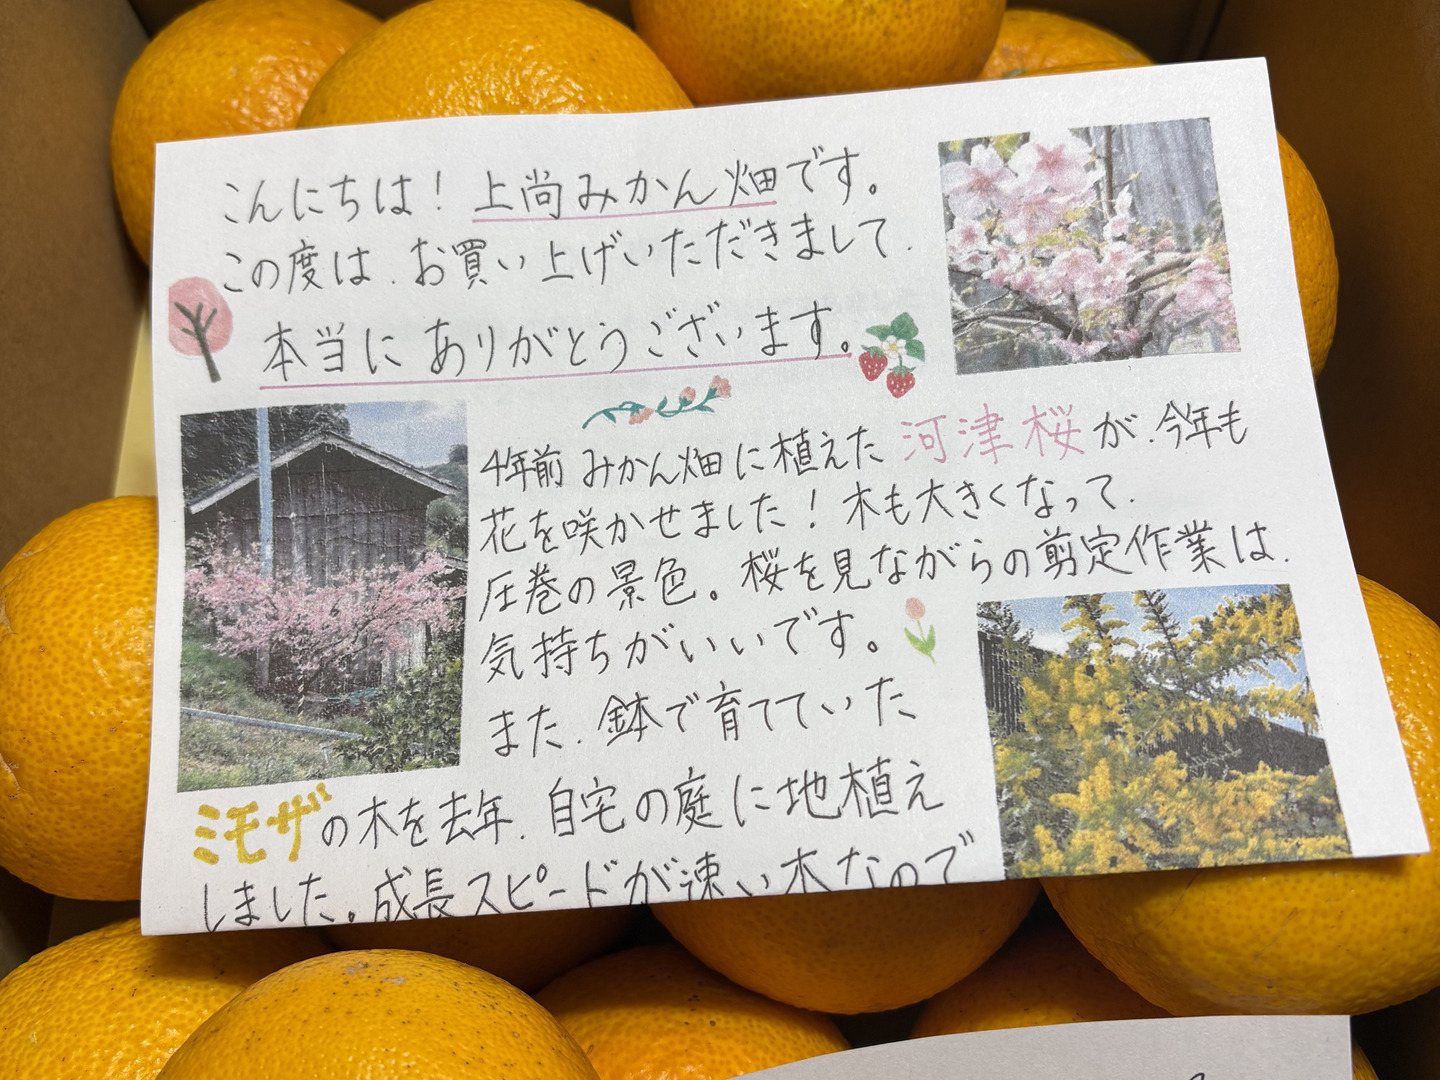 こんにちは！上尚みかん畑です。
この度は、お買い上げいただきまして、
本当にありがとうございます。
4年前 みかん畑に植えた 河津桜が、今年も
花を咲かせました！木も大きくなって、
圧巻の景色。桜を見ながらの剪定作業は、
気持ちがいいです。
また、鉢で育てていた
ミモザの木を去年、自宅の庭に地植え
しました。成長スピードが速い木なので